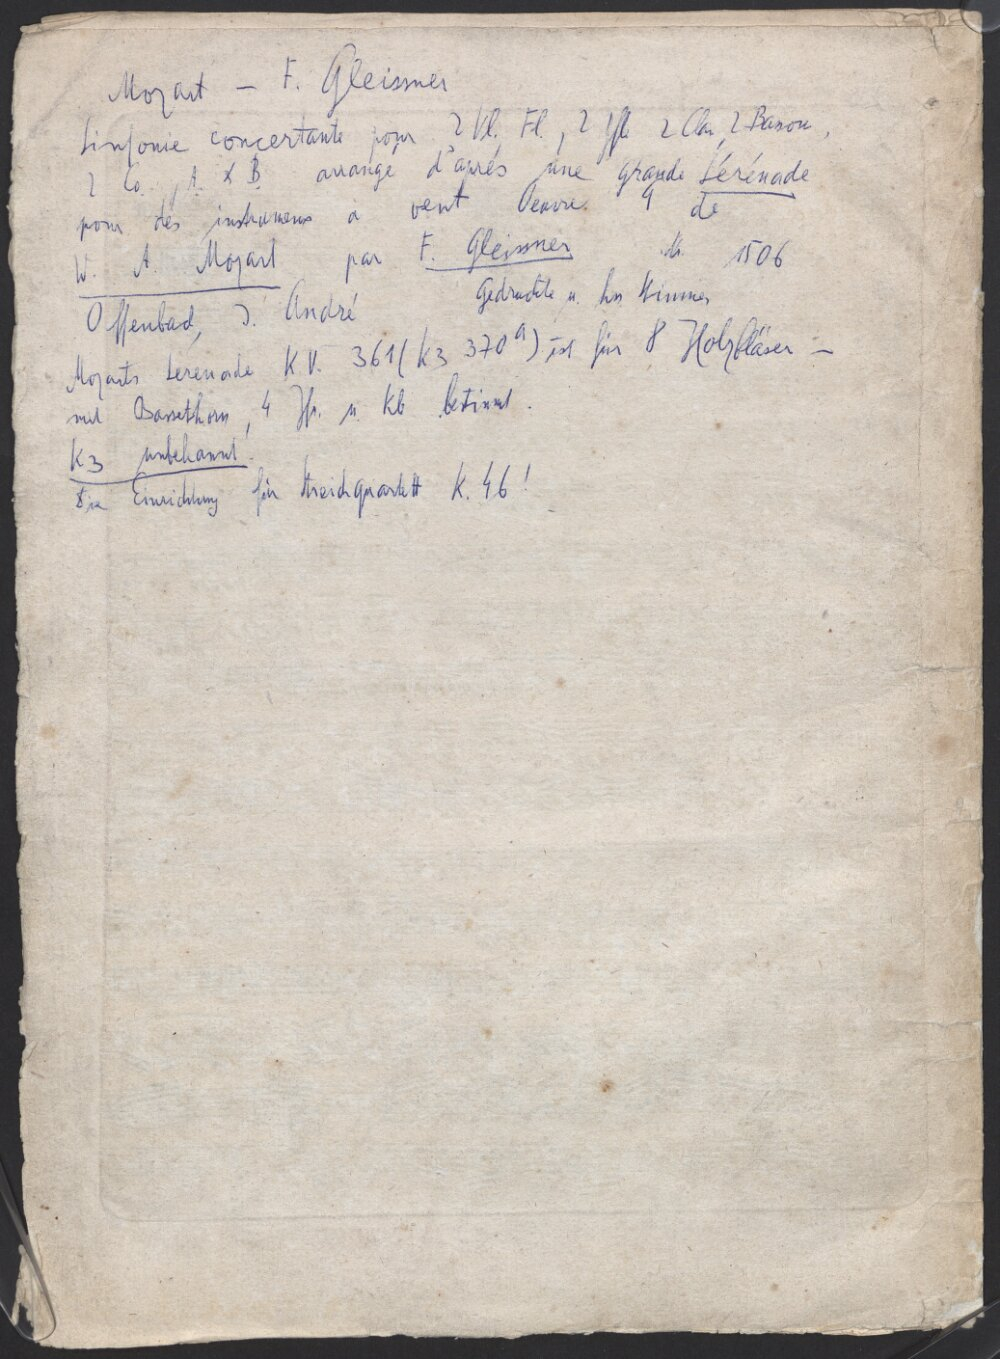 Mozart – F. Gleissner
Sinfonie concertante pour 2 Vl. Fl., 2 2 Clar, 2 Basson,
2 Co., A. & B. arrangé d'aprés une grande Sérénade
pour des instrumens a vent Oeuvre 9 de
W. A. Mozart par F. Gleissner No. 1506
Offenbach, J. André Gedruckte u. hs Stimmen
Mozarts Serenade K.V. 361 (K3 370a) ist für 8 Holzbläser –
mit Bassethorn, 4 Hr. u. Kb bestimmt.
K3 unbekannt!
Einrichtung für Streichquartett K. 46!